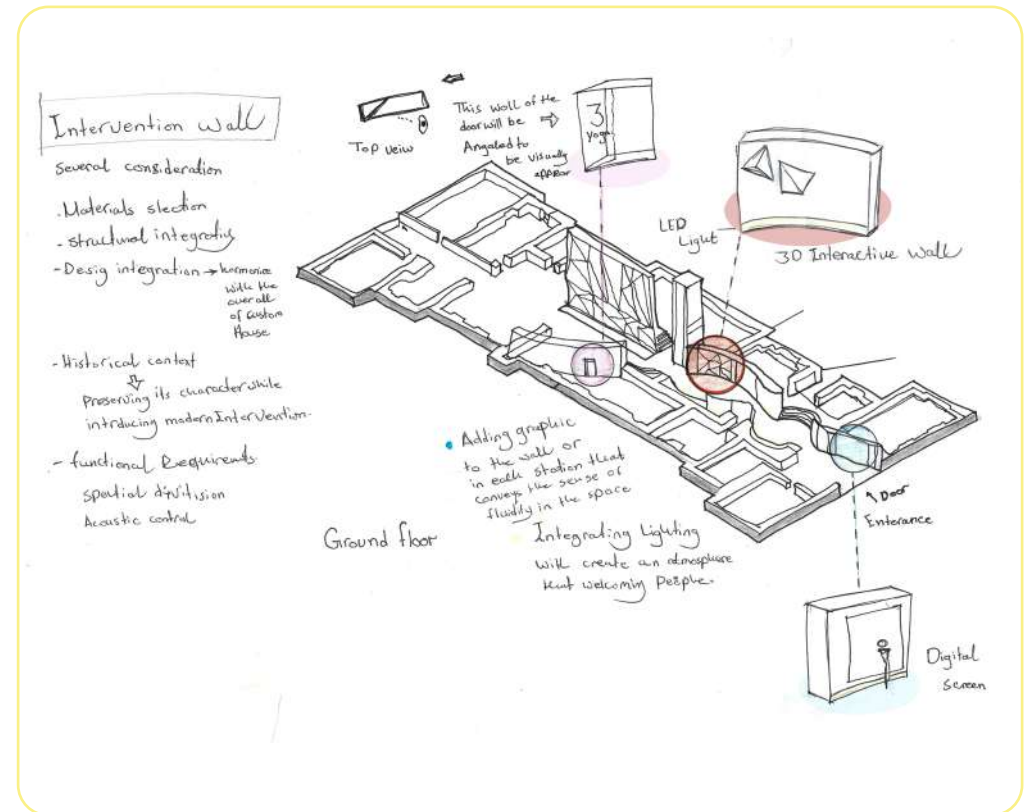 Intervention wall
Several consideration
. Materials slection
- structural integratiy
- Desig integration → harmonize
with the
over all
of Custom
House
- Historical context
preserving its character while
intrducing modern Intervention.
- functional Requirents
spatial divitision
Acoustic control
Top veiw
This wall of the
door will be
Angaled to
be visualy
appear
3
Yoga
LED
Light
3D Interactive wall
Adding graphic
to the wall or
in each station that
conveys the sense of
fluidity in the space
Ground floor
Integrating Lighting
will create an atmosphere
that welcoming people.
Door
Enterance
Digital
Screen